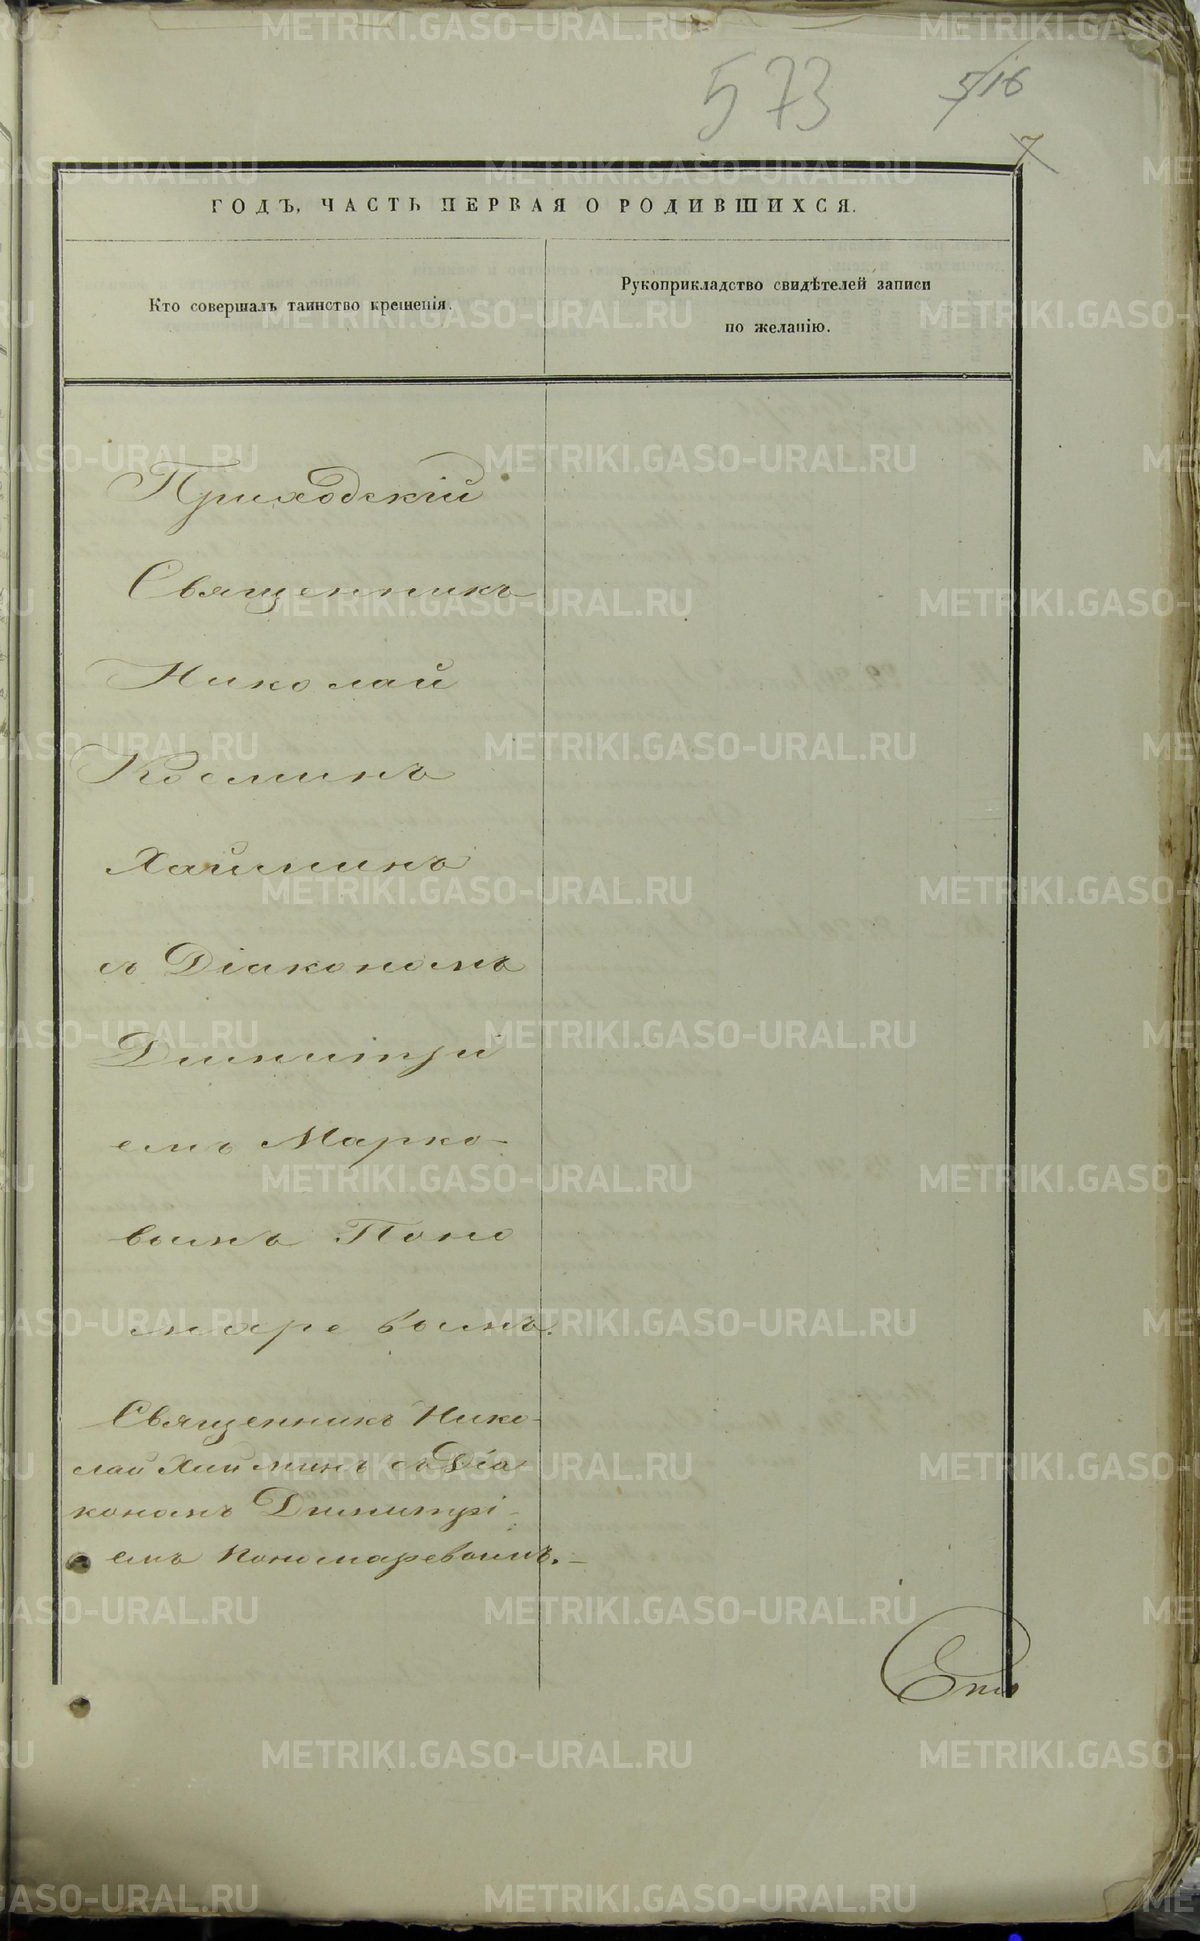 573
516
7
ГОДЪ, ЧАСТЬ ПЕРВАЯ О РОДИВШИХСЯ.
Кто совершалъ таинство крещенія.
Рукоприкладство свидѣтелей записи
по желанію.
Приходскій
Священникъ
Николай
Косминъ
Хайминъ
съ Діакономъ
Димитрі
емъ Марко-
вымъ Поно
маревымъ.
Священникъ Нико-
лай Хайминъ съ Діа
кономъ Димитрі-
емъ Пономаревымъ.
METRIKI.GASO-URAL.RU